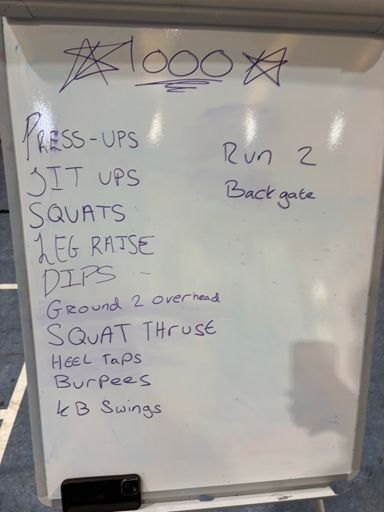 1000
PRESS-UPS
SIT UPS
SQUATS
LEG RAISE
DIPS
Ground 2 overhead
SQUAT THRUSE
HEEL TAPS
Burpees
KB Swings
Run 2
Back gate